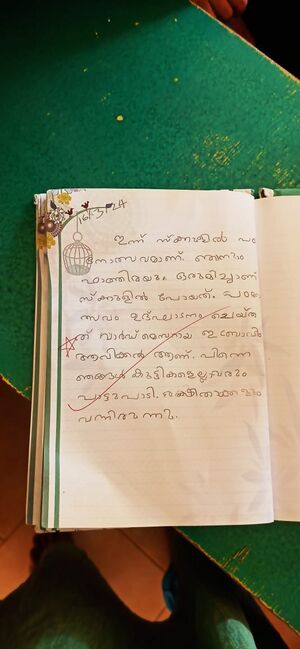 16/3/24
ഇന്ന് സ്ക്കൂളിൽ പഠ
നോത്സവമാണ്. ഞാനും
ഫാത്തിമയും ഒരുമിച്ചാണ്
സ്ക്കൂളിൽ പോയത്. പഠനോ
ത്സവം ഉദ്ഘാടനം ചെയ്ത
ത് വാർഡ് മെമ്പറായ
ആണ്. പിന്നെ
ഞങ്ങൾ കുട്ടികളെല്ലാവരും
പാട്ടുപാടി. രക്ഷിതാക്കളും
വന്നിരുന്നു.